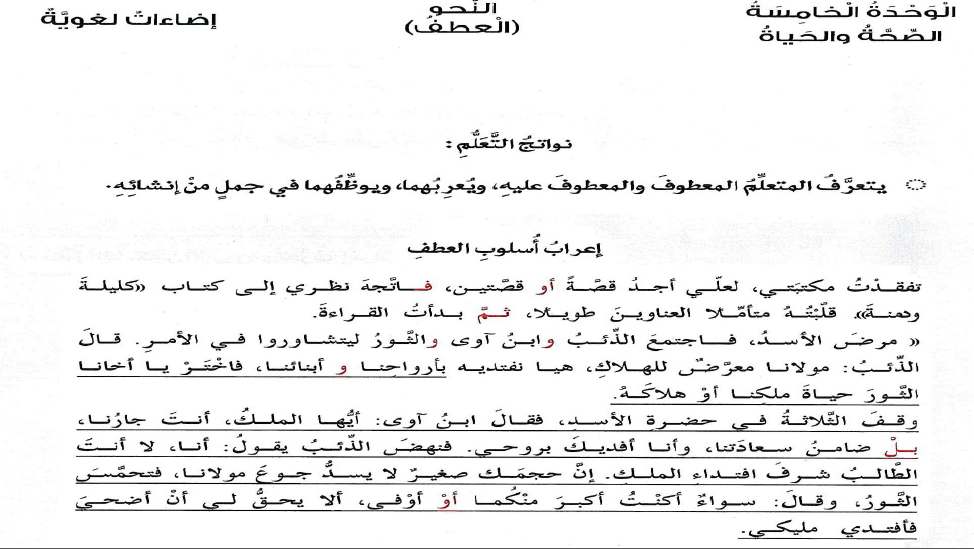 الْوَحْدَةُ الْخَامِسَةُ
الصِّحَّةُ والحَياةُ
النَّحو
(الْعطفُ)
إضاءاتٌ لغويَّةٌ
نواتجُ التَّعَلُّمِ :
يتعرَّفُ المتعلِّمُ المعطوفَ والمعطوفَ عليهِ، ويُعرِبُهما، ويوظِّفُهما في جملٍ منْ إنشائِهِ.
إعرابُ أُسلوبِ العطفِ
تفقدْتُ مكتبَتي، لعلّي أجدُ قصّةً أو قصّتين، فاتّجهَ نظري إلى كتاب «كليلةَ
ودمنةَ». قلّبْتُهُ متأمّلا العناوينَ طويلا، ثمَّ بدأتُ القراءةَ.
« مرضَ الأسدُ، فاجتمعَ الذّئبُ وابنُ آوى والثّورُ ليتشاوروا في الأمرِ. قالَ
الذّئبُ: مولانا معرّضٌ للهلاكِ، هيا نفتديه بأرواحِنا و أبنائنا، فاخْتَرْ يا أخانا
الثّورَ حياةَ ملكِنا أوْ هلاكَهُ.
وقفَ الثّلاثةُ في حضرةِ الأسد، فقالَ ابنُ آوى: أيُّها الملكُ، أنتَ جارُنا،
بلْ ضامنُ سعادَتنا، وأنا أفديكَ بروحي. فنهضَ الذّئبُ يقولُ: أنا، لا أنتَ
الطّالبُ شرفَ افتداء الملك. إنَّ حجمَك صغيرٌ لا يسدُّ جوعَ مولانا، فتحمَّسَ
الثّورُ، وقالَ: سواءٌ أكنْتُ أكبرَ منْكُما أوْ أوْفى، ألا يحقُّ لي أنْ أضحيَ
فأفتدي مليكي.